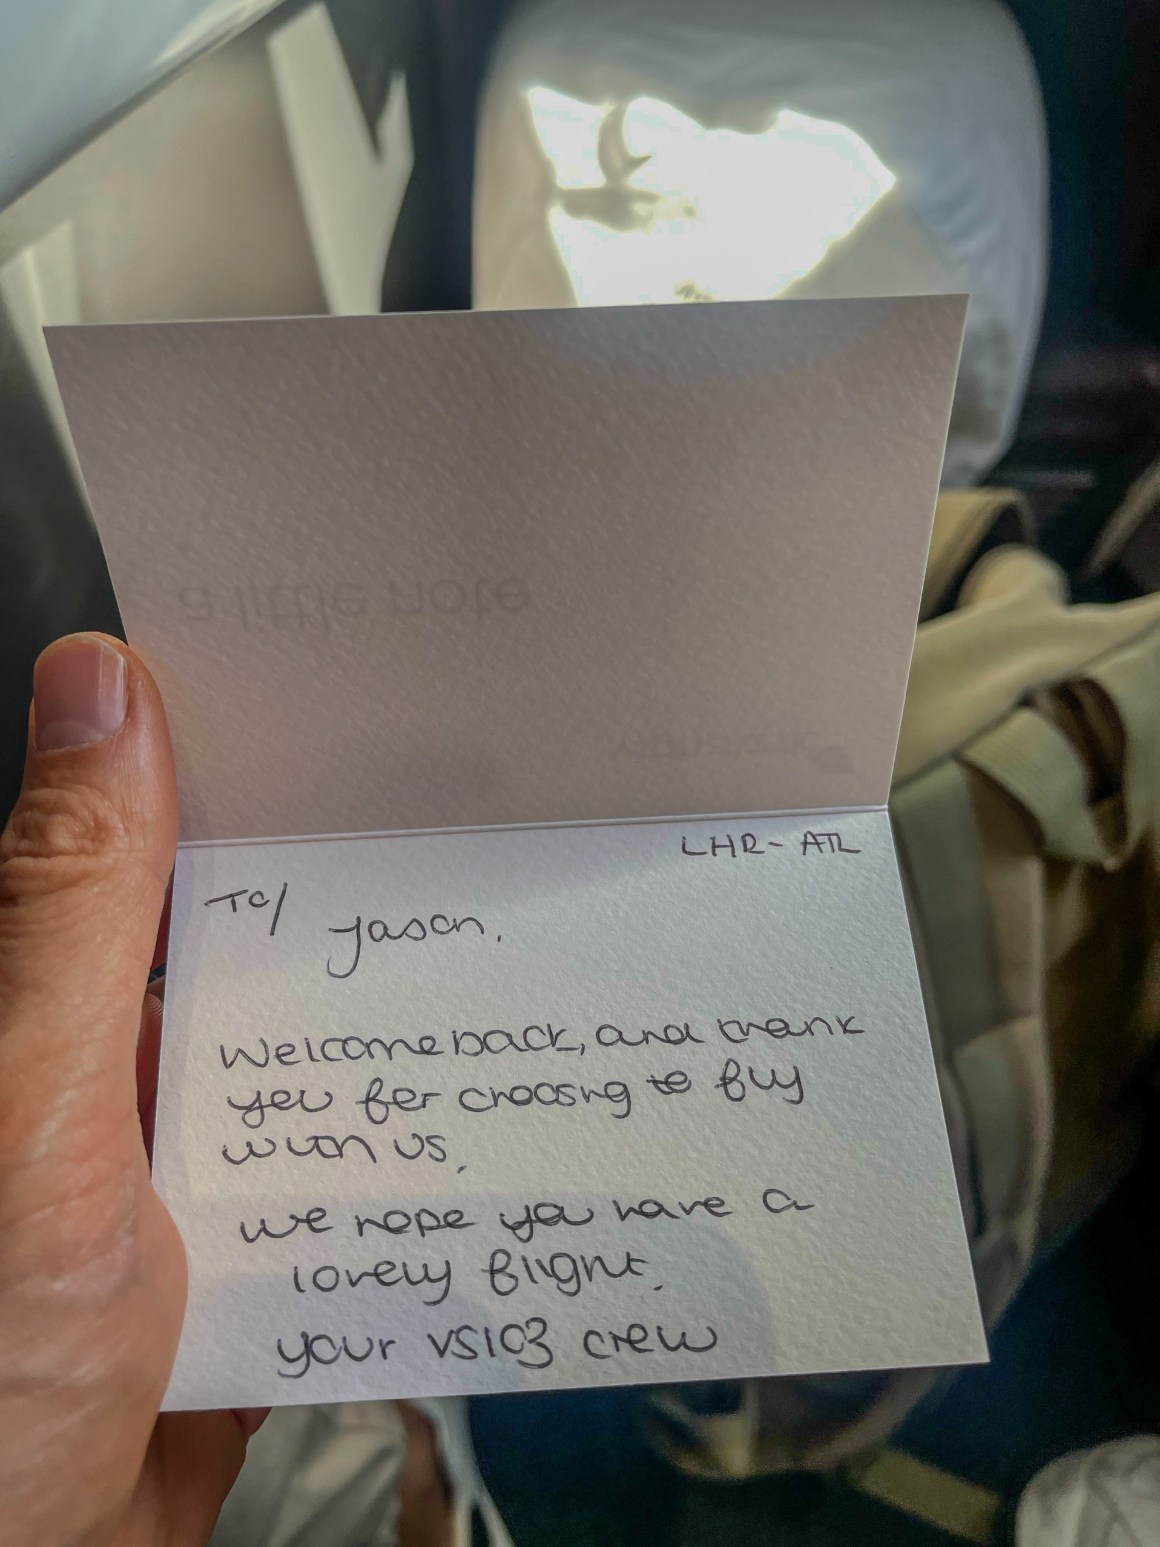 a little note
LHR - ATL
To/
Jason,
Welcome back, and thank
you for choosing to fly
with us,
we hope you have a
lovely flight.
your VS103 crew